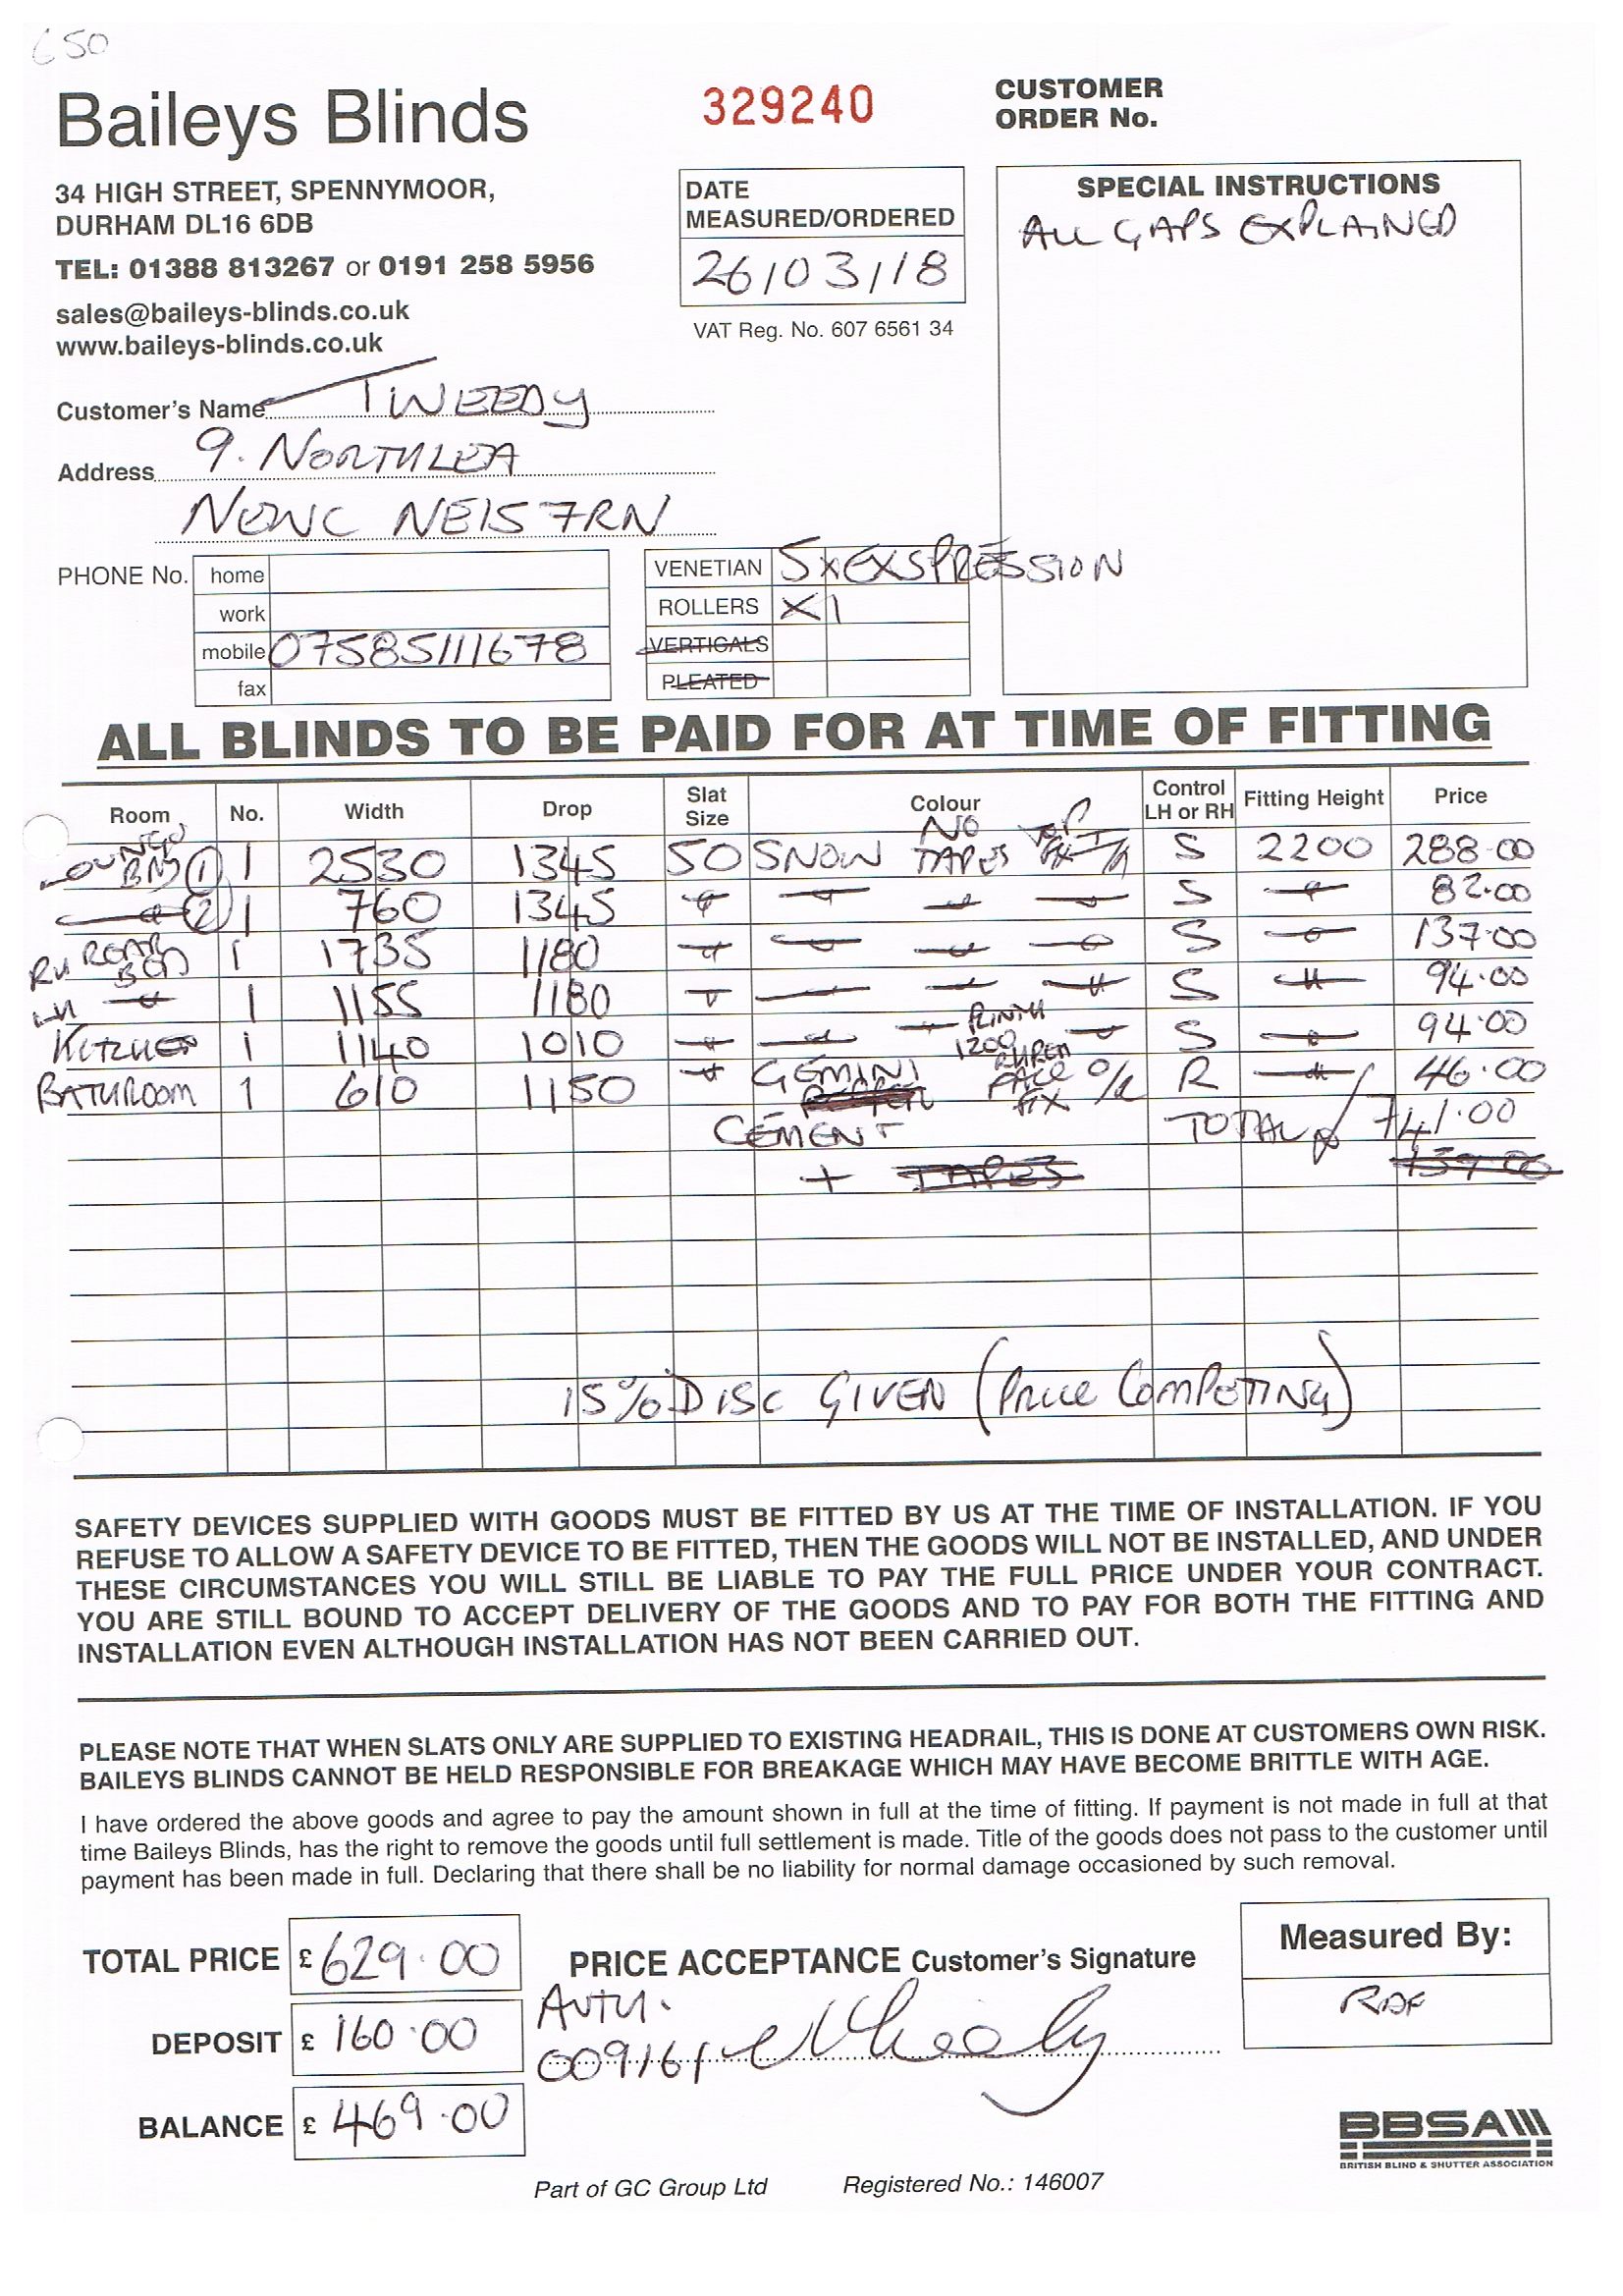 650
Baileys Blinds
34 HIGH STREET, SPENNYMOOR,
DURHAM DL16 6DB
TEL: 01388 813267 or 0191 258 5956
sales@baileys-blinds.co.uk
www.baileys-blinds.co.uk
329240
DATE
MEASURED/ORDERED
26/03/18
VAT Reg. No. 607 6561 34
CUSTOMER
ORDER No.
SPECIAL INSTRUCTIONS
ALL GAPS EXPLAINED
Customer's Name TWEEDY
Address 9. NORTHLEA
NEWC NE15 7RN
PHONE No. home
work
mobile 07585111678
fax
VENETIAN 5x EXSPRESSION
ROLLERS X1
VERTICALS
PLEATED
ALL BLINDS TO BE PAID FOR AT TIME OF FITTING
Room No. Width Drop Slat Size Colour Control LH or RH Fitting Height Price
LOUNGE BAY 1 1 2530 1345 50 SNOW NO TAPES TOP FIX S 2200 288.00
2 1 760 1345 S 82.00
RH ROAR BED 1 1735 1180 S 137.00
LH 1 1155 1180 S 94.00
KITCHEN 1 1140 1010 PLINTH 1200 S 94.00
BATHROOM 1 610 1150 GEMINI FACE FIX O/R R 46.00
CEMENT TOTAL 741.00
+ TAPES
15% DISC GIVEN (PRICE COMPETING)
SAFETY DEVICES SUPPLIED WITH GOODS MUST BE FITTED BY US AT THE TIME OF INSTALLATION. IF YOU
REFUSE TO ALLOW A SAFETY DEVICE TO BE FITTED, THEN THE GOODS WILL NOT BE INSTALLED, AND UNDER
THESE CIRCUMSTANCES YOU WILL STILL BE LIABLE TO PAY THE FULL PRICE UNDER YOUR CONTRACT.
YOU ARE STILL BOUND TO ACCEPT DELIVERY OF THE GOODS AND TO PAY FOR BOTH THE FITTING AND
INSTALLATION EVEN ALTHOUGH INSTALLATION HAS NOT BEEN CARRIED OUT.
PLEASE NOTE THAT WHEN SLATS ONLY ARE SUPPLIED TO EXISTING HEADRAIL, THIS IS DONE AT CUSTOMERS OWN RISK.
BAILEYS BLINDS CANNOT BE HELD RESPONSIBLE FOR BREAKAGE WHICH MAY HAVE BECOME BRITTLE WITH AGE.
I have ordered the above goods and agree to pay the amount shown in full at the time of fitting. If payment is not made in full at that
time Baileys Blinds, has the right to remove the goods until full settlement is made. Title of the goods does not pass to the customer until
payment has been made in full. Declaring that there shall be no liability for normal damage occasioned by such removal.
TOTAL PRICE £ 629.00
DEPOSIT £ 160.00
BALANCE £ 469.00
PRICE ACCEPTANCE Customer's Signature
AUTH.
009161
Measured By:
RAF
BBSA
BRITISH BLIND & SHUTTER ASSOCIATION
Part of GC Group Ltd Registered No.: 146007